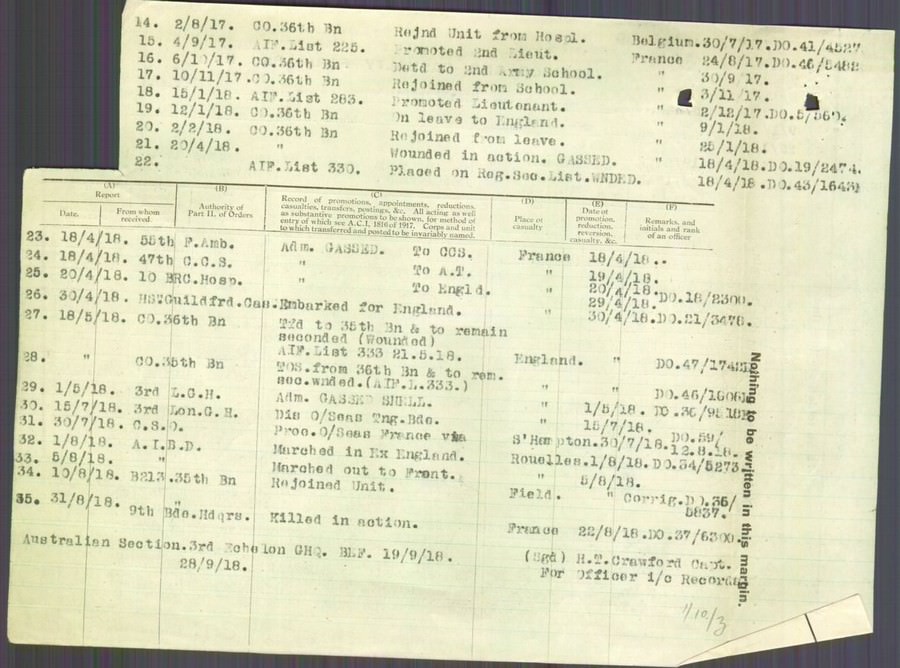 14. 2/8/17. CO.36th Bn Rejnd Unit from Hospl. Belgium.30/7/17.DO.41/4527
15. 4/9/17. AIF.List 225. Promoted 2nd Lieut. France 24/8/17.DO.46/5482
16. 6/10/17. CO.36th Bn Detd to 2nd Army School. " 30/9/17.
17. 10/11/17.CO.36th Bn Rejoined from School. " 3/11/17.
18. 15/1/18. AIF.List 283. Promoted Lieutenant. " 2/12/17.DO.5/560.
19. 12/1/18. CO.36th Bn On leave to England. " 9/1/18.
20. 2/2/18. CO.36th Bn Rejoined from leave. " 25/1/18.
21. 20/4/18. " Wounded in action. GASSED. " 18/4/18.DO.19/2474.
22. AIF.List 330. Placed on Reg.Sec.List.WNDED. 18/4/18.DO.43/1643
(A) (B) (C) (D) (E) (F)
Report
Date. From whom received.
Authority of Part II. of Orders
Record of promotions, appointments, reductions, casualties, transfers, postings, &c. All acting as well as substantive promotions to be shown, for method of entry of which see A.C.I. 1816 of 1917. Corps and unit to which transferred and posted to be invariably named.
Place of casualty
Date of promotion, reduction, reversion, casualty, &c.
Remarks, and initials and rank of an officer
23. 18/4/18. 55th F.Amb. Adm. GASSED. To CCS. France 18/4/18.
24. 18/4/18. 47th C.C.S. " To A.T. " 19/4/18.
25. 20/4/18. 10 BRC.Hosp. " To Engld. " 20/4/18.
29/4/18.DO.18/2300.
26. 30/4/18. HS"Guildfrd.Cas. Embarked for England. " 30/4/18.DO.21/3478.
27. 18/5/18. CO.36th Bn Tfd to 35th Bn & to remain
seconded (Wounded)
AIF.List 333 21.5.18. England. " DO.47/1742
28. " CO.35th Bn TOS.from 36th Bn & to rem.
sec.wnded.(AIF.L.333.) " " DO.46/1606
29. 1/5/18. 3rd L.G.H. Adm. GASSED SHELL. " 1/5/18. DO.36/
30. 15/7/18. 3rd Lon.G.H. Dis O/Seas Tng.Bde. " 15/7/18.
31. 30/7/18. C.S.O. Proc.O/Seas France via S'Hampton.30/7/18. DO.59/
12.8.18.
32. 1/8/18. A.I.B.D. Marched in Ex England. Rouelles.1/8/18.DO.34/5273
33. 5/8/18. " Marched out to Front. " 5/8/18.
34. 10/8/18. B213.35th Bn Rejoined Unit. Field. " Corrig.DO.36/
5837.
35. 31/8/18. "
9th Bde.Hdqrs. Killed in action. France 22/8/18.DO.37/6300.
Australian Section.3rd Echelon GHQ. BEF. 19/9/18. (Sgd) H.T.Crawford Capt.
28/9/18. For Officer i/c Records
Nothing to be written in this margin.